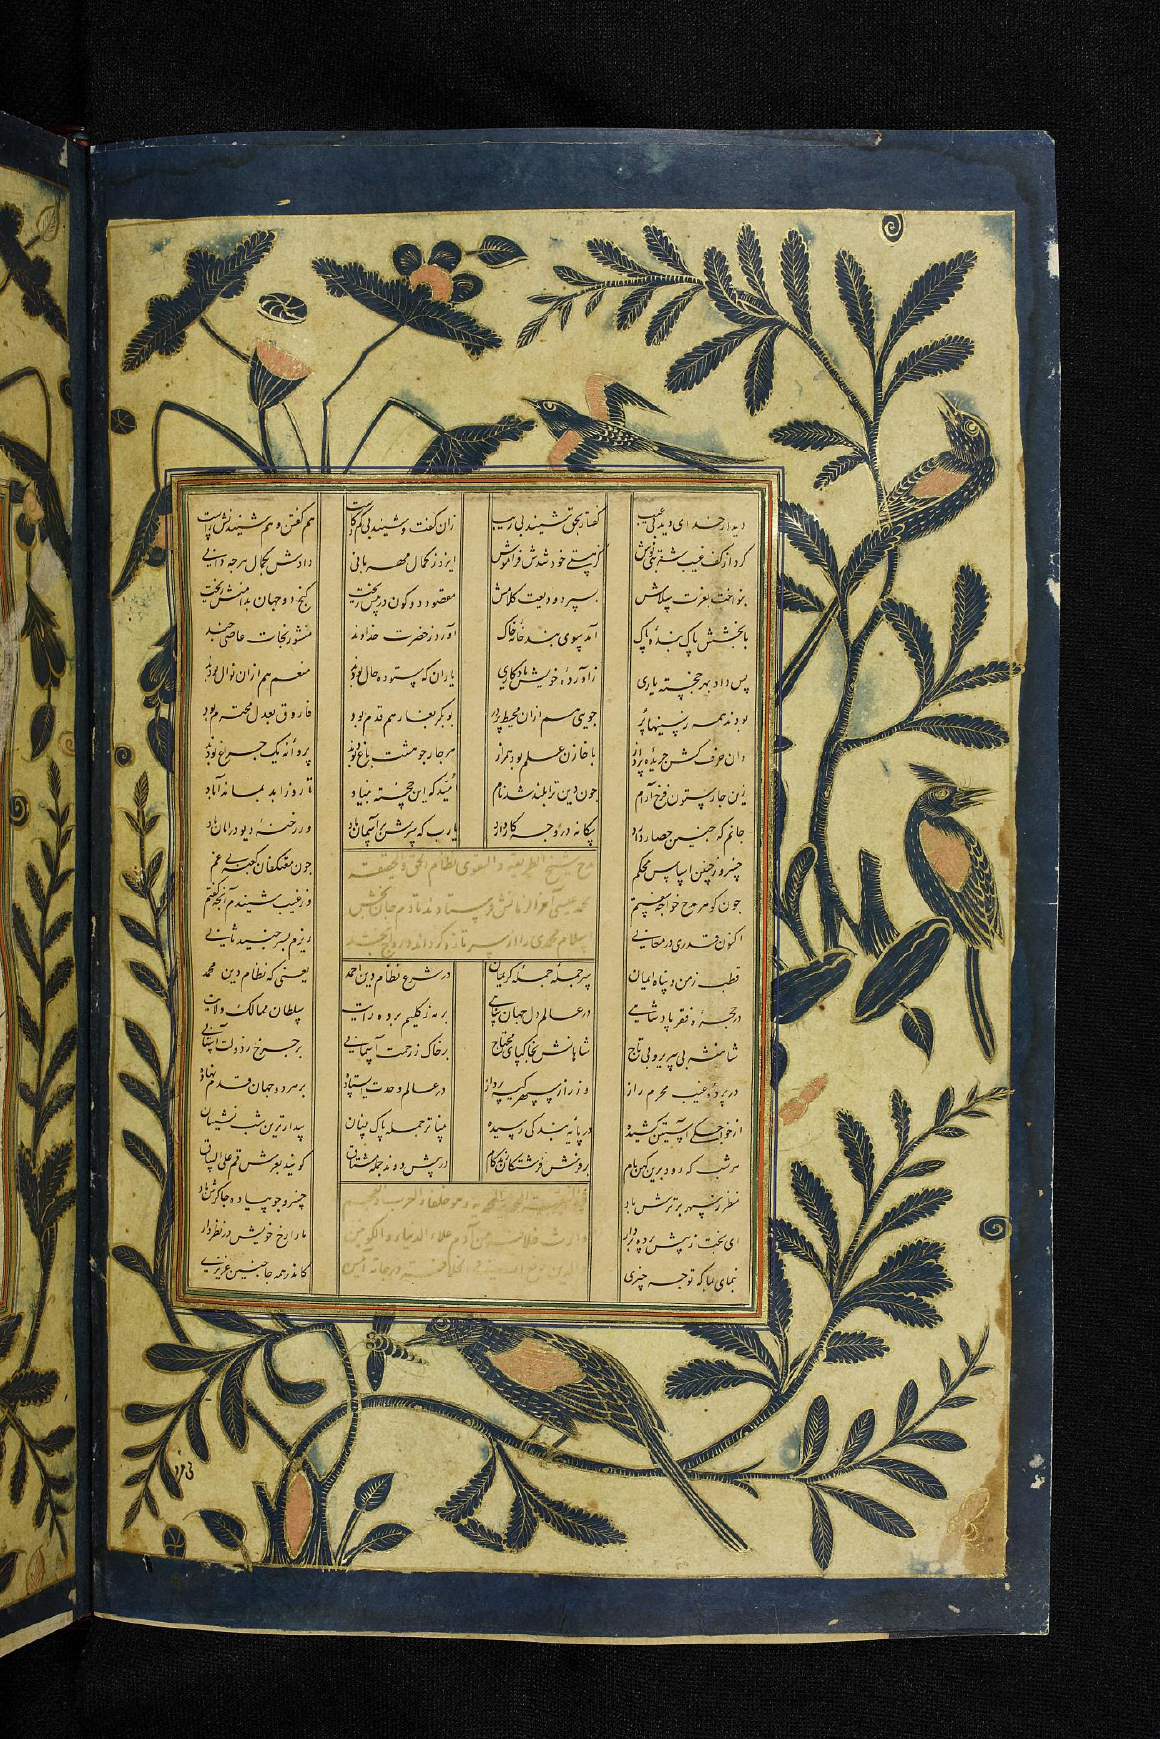 دیدار خدای دید بی عیب گفتار بحق شنید بی ریب زان گفت و شنید بی کم و کاست هم گفتن و هم شنیدنش راست
کرد از کف غیب شربتی نوش کز هستی خود شدش فراموش ایزد ز کمال مهربانی دادش بکمال هرچه دانی
بنواخت بعزت سلامش بسپرد ودیعت کلامش مقصود دو کون در پیش ریخت گنج دو جهان بدامنش ریخت
با بخشش پاک بنده پاک آمد سوی بند خانه خاک آورد ز حضرت خداوند منشور نجات عاصی چند
پس داد بهر خجسته یاری زاورده خویش یادگاری یاران که ستوده حال بودند منعم هم ازان نوال بودند
بودند همه ز سینها پر جوی هم ازان محیط پر در بوبکر بغار هم قدم بود فاروق بعدل محترم بود
وان حرف کش جریده پرداز با خازن علم بود همراز هر چار چو هشت باغ بودند پروانه یک چراغ بودند
زین چار ستون فرخ آرام چون دین ترا بلند شد نام امید که این خجسته بنیاد تا روز ابد بماند آباد
جانم که چنین حصار دارد بیگانه درو چه کار دارد یارب که آسمان باد ور رخنه دیو در امان باد
خسرو ز چنین اساس محکم چون معتکفان کعبه بی غم
چون گوهر مدح خواجه سفتم وز غیب شنیدم آنچه گفتم
اکنون قدری در معانی ریزم بسر جنید ثانی
مدح شیخ الطریقه و التقوی نظام الحق و الحقیقه
محمد عیسی آخر الزمانش فرستادند تا دم جان بخش
اسلام محمدی را از سر تازه گرداند و رواج بخشد
قطب زمن و پناه ایمان سر جمله جمله کریمان در شرع نظام دین احمد یعنی که نظام دین محمد
در حجره فقر پادشاهی در عالم دل جهان پناهی بر مه ز گلیم برده رایت سلطان ممالک ولایت
شاهنشه بی سریر و بی تاج شاهانش بخاکپای محتاج بر خاک ز رحمت آسمانی بر چرخ ز دولت آستانی
در پرده غیب محرم راز وز راز سپهر کیسه پرداز در عالم وحدت ایستاده بر هر دو جهان قدم نهاده
از خواجگی آستین کشیده در پایه بندگی رسیده بیناتر جمله پاک بینان بیدارترین شب نشینان
هر شب که رود برین کهن بام بر فرش فرشتگان نهد گام در پیش دوند جمله مشتاق گویند بعرش قم علی الساق
منظر ز سپهر برترش باد خسرو چو پیاده چاکرش باد
ای بخت ز پیش پرده بردار ما را رخ خویش در نظر دار
بنمای لقا که تو چه چیزی کاندر همه جا چنین عزیزی